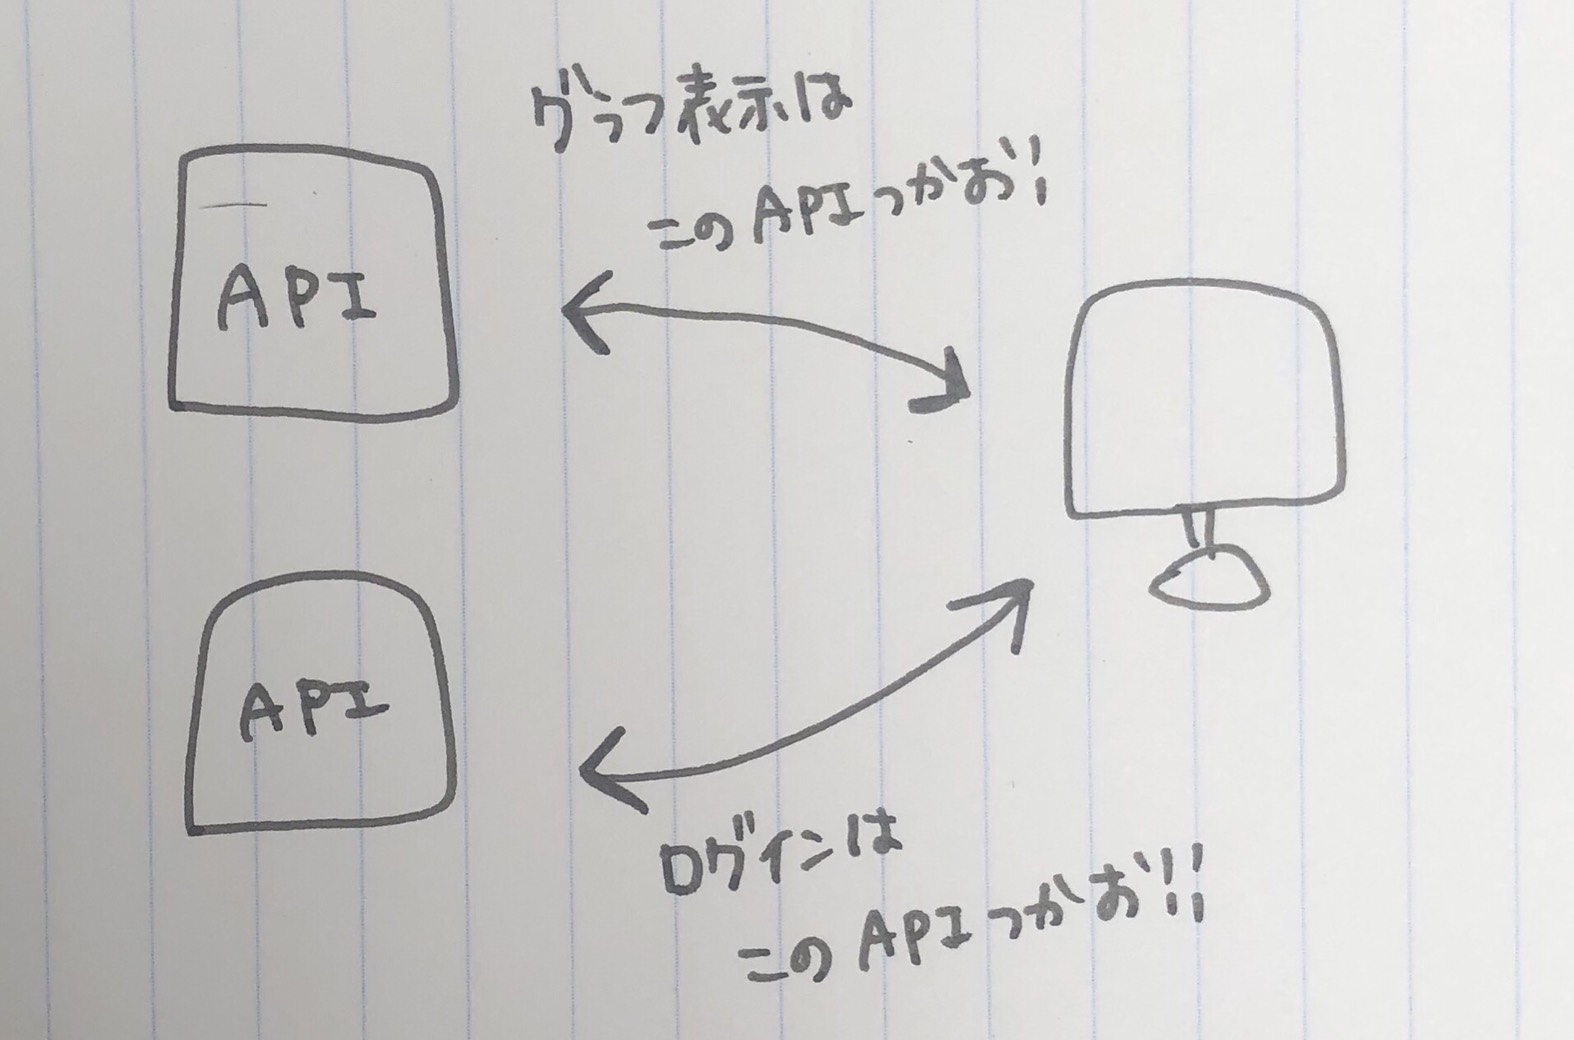 グラフ表示は
このAPIつかお!!
API
API
ログインは
このAPIつかお!!!